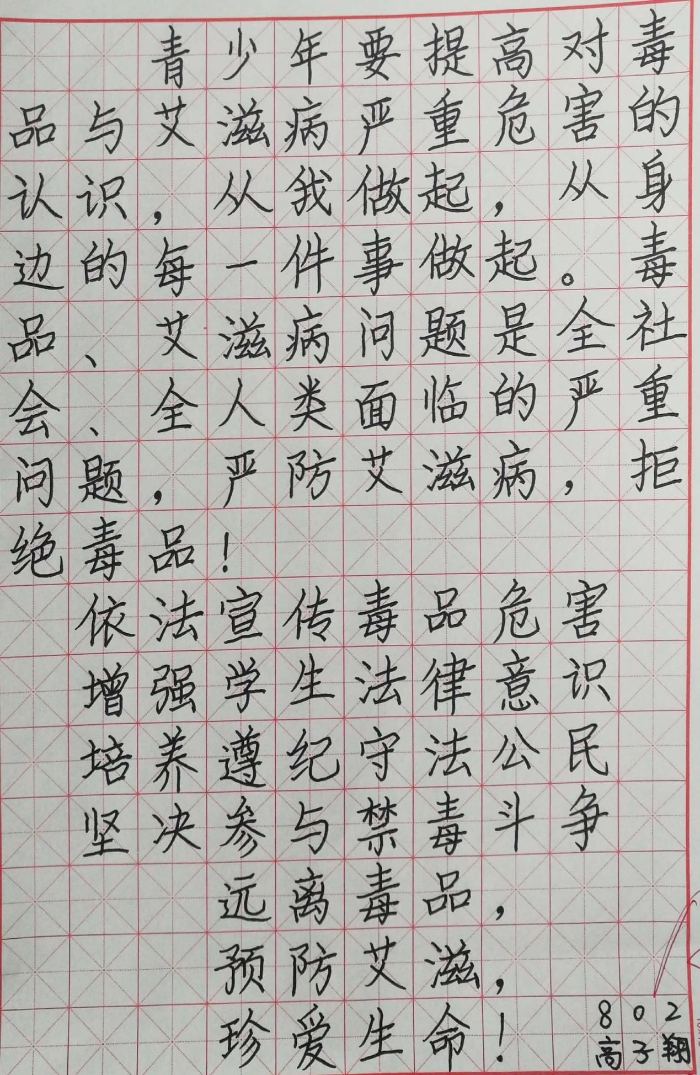 青少年要提高对毒
品与艾滋病严重危害的
认识，从我做起，从身
边的每一件事做起。毒
品、艾滋病问题是全社
会、全人类面临的严重
问题，严防艾滋病，拒
绝毒品！
依法宣传毒品危害
增强学生法律意识
培养遵纪守法公民
坚决参与禁毒斗争
远离毒品，
预防艾滋，
珍爱生命！
802
高子翔